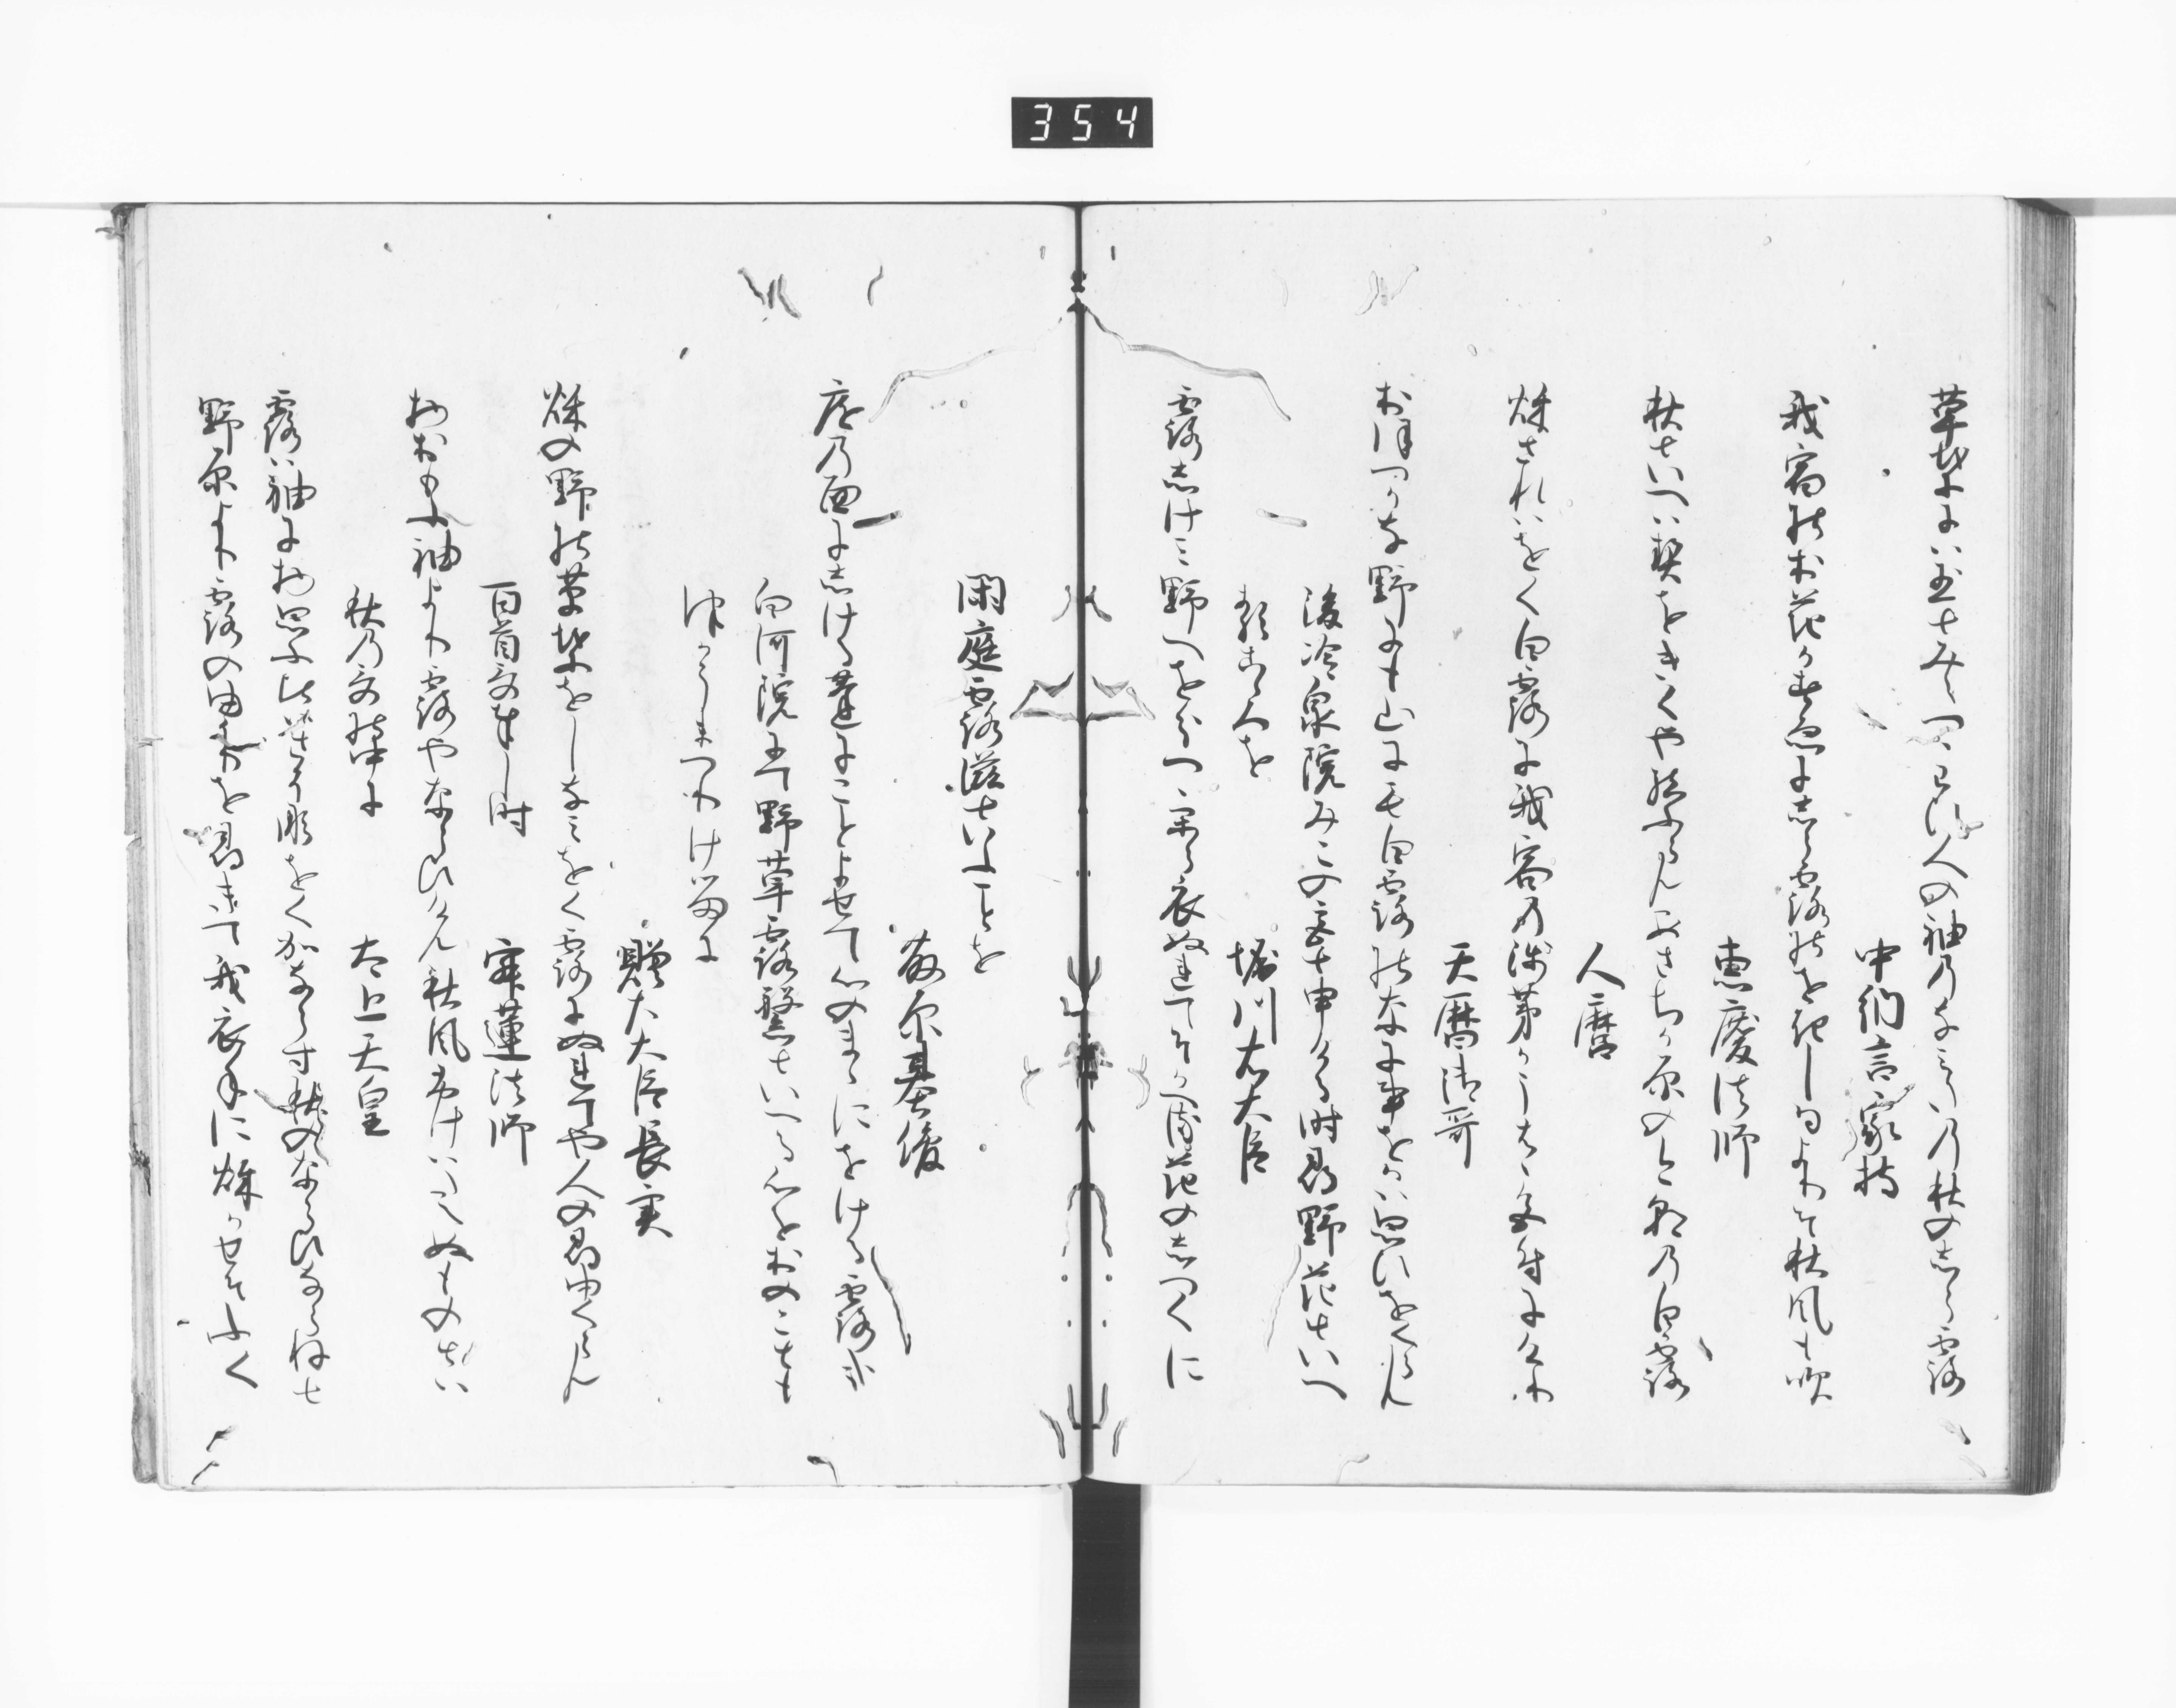 354
草葉には玉とみえつゝわひ人の袖のなみたの秋のしら露
中納言家持
我宿のおはなかすゑにしら露のをきし日よりそ秋風も吹
恵慶法師
秋といへは契をきてや結ふらんあさちか原のけさの白露
人麿
秋されはをく白露に我宿の浅茅かうは葉色付にけり
天暦御哥
おほつかな野にも山にも白露のなに事をかは思ひをくらん
後冷泉院みこの宮と申ける時尋野花といへ
る心を
堀川右大臣
露しけみ野へをわけつゝから衣ぬれてそかへる花のしつくに
閑庭露滋といふことを
藤原基俊
庭の面にしける蓬にことよせて心のまゝにをける露哉
白河院にて野草露繁といへる心をおのことも
つかうまつりけるに
贈太大臣長実
秋の野の草葉をしなみをく露にぬれてや人の尋ゆくらん
百首哥奉し時
寂蓮法師
物おもふ袖より露やならひけん秋風ふけはたへぬものとは
秋の哥の中に
太上天皇
露は袖に物思ふ比はさそなをくかならす秋のならひならねと
野原より露のゆかりを尋きて我衣手に秋かせそふく